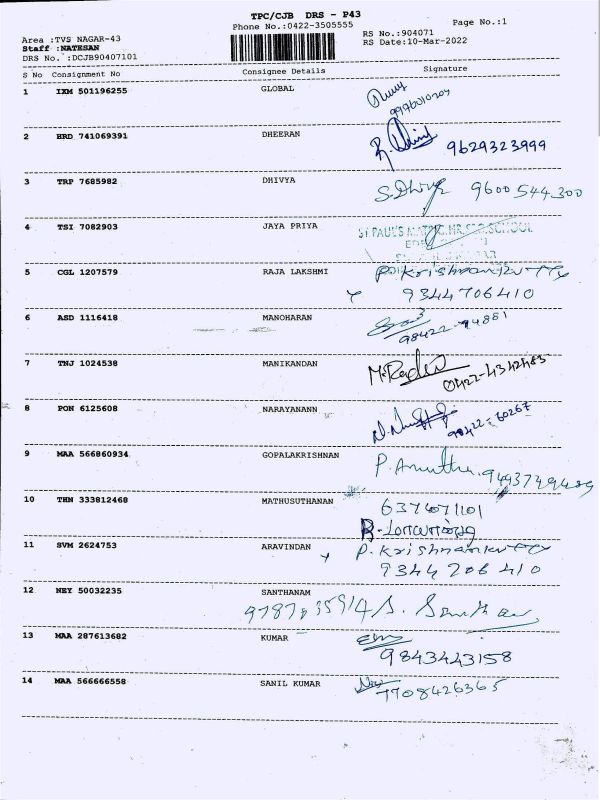 TPC/CJB DRS - P43
Phone No.:0422-3505555
Page No.:1
Area :TVS NAGAR-43
Staff :NATESAN
DRS No. :DCJB90407101
RS No.:904071
RS Date:10-Mar-2022
S No Consignment No Consignee Details Signature
1 IXM 501196255 GLOBAL
2 HRD 741069391 DHEERAN
9629323999
3 TRP 7685982 DHIVYA
S. Dhivya 9600 544 300
4 TSI 7082903 JAYA PRIYA
ST. PAUL'S MATRIC. HR. SEC. SCHOOL
5 CGL 1207579 RAJA LAKSHMI
P. Krishnankutty
9344706410
6 ASD 1116418 MANOHARAN
98422-74881
7 TNJ 1024538 MANIKANDAN
0422-4342483
8 PON 6125608 NARAYANANN
98422-60267
9 MAA 566860934 GOPALAKRISHNAN
P. Amutha
10 THN 333812468 MATHUSUTHANAN
11 SVM 2624753 ARAVINDAN
P. Krishnankutty
9344706410
12 NEY 50032235 SANTHANAM
13 MAA 287613682 KUMAR
9843443158
14 MAA 566666558 SANIL KUMAR
7708426365